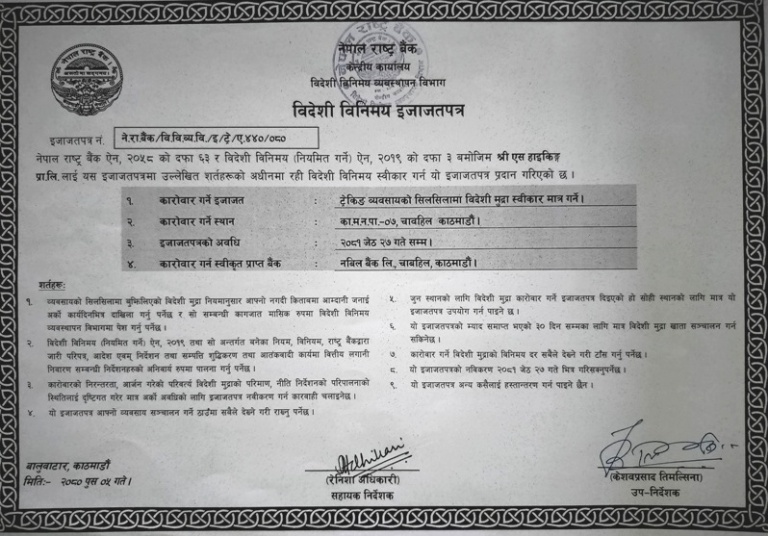 नेपाल राष्ट्र बैंक
नेपाल राष्ट्र बैंक
केन्द्रीय कार्यालय
विदेशी विनिमय व्यवस्थापन विभाग
विदेशी विनिमय इजाजतपत्र
इजाजतपत्र नं. ने.रा.बैंक/वि.वि.व्य.वि./इ/ट्रे/ए.४४०/०८०
नेपाल राष्ट्र बैंक ऐन, २०५८ को दफा ६३ र विदेशी विनिमय (नियमित गर्ने) ऐन, २०१९ को दफा ३ बमोजिम श्री एस हाइकिङ्ग
प्रा.लि. लाई यस इजाजतपत्रमा उल्लेखित शर्तहरूको अधीनमा रही विदेशी विनिमय स्वीकार गर्न यो इजाजतपत्र प्रदान गरिएको छ ।
१. कारोवार गर्ने इजाजत : ट्रेकिङ व्यवसायको सिलसिलामा विदेशी मुद्रा स्वीकार मात्र गर्ने।
२. कारोवार गर्ने स्थान : का.म.न.पा.-०७, चावहिल काठमाडौं।
३. इजाजतपत्रको अवधि : २०८१ जेठ २७ गते सम्म।
४. कारोवार गर्न स्वीकृत प्राप्त बैंक : नबिल बैंक लि., चाबहिल, काठमाडौं।
शर्तहरू:
१. व्यवसायको सिलसिलामा बुझिलिएको विदेशी मुद्रा नियमानुसार आफ्नो नगदी किताबमा आम्दानी जनाई
अर्को कार्यदिनभित्र दाखिला गर्नु पर्नेछ । र सो सम्बन्धी कागजात मासिक रुपमा विदेशी विनिमय
व्यवस्थापन विभागमा पेश गर्नु पर्नेछ ।
२. विदेशी विनिमय (नियमित गर्ने) ऐन, २०१९, तथा सो अन्तर्गत बनेका नियम, विनियम, राष्ट्र बैंकद्वारा
जारी परिपत्र, आदेश एवम् निर्देशन तथा सम्पत्ति शुद्धिकरण तथा आतंकवादी कार्यमा वित्तीय लगानी
निवारण सम्बन्धी निर्देशनहरुको अनिवार्य रुपमा पालना गर्नु पर्नेछ ।
३. कारोबारको निरन्तरता, आर्जन गरेको परिवर्त्य विदेशी मुद्राको परिमाण, नीति निर्देशनको परिपालनाको
स्थितिलाई दृष्टिगत गरेर मात्र अर्को अवधिको लागि इजाजतपत्र नवीकरण गर्न कारवाही चलाइनेछ ।
४. यो इजाजतपत्र आफ्नो व्यवसाय सञ्चालन गर्ने ठाउँमा सबैले देख्ने गरी राख्नु पर्नेछ ।
५. जुन स्थानको लागि विदेशी मुद्रा कारोबार गर्ने इजाजतपत्र दिइएको हो सोही स्थानको लागि मात्र यो
इजाजतपत्र उपयोग गर्न पाइने छ ।
६. यो इजाजतपत्रको म्याद समाप्त भएको ३० दिन सम्मका लागि मात्र विदेशी मुद्रा खाता सञ्चालन गर्न
सकिनेछ ।
७. कारोबार गर्ने विदेशी मुद्राको विनिमय दर सबैले देख्ने गरी टाँस गर्नु पर्नेछ ।
८. यो इजाजतपत्रको नविकरण २०८१ जेठ २७ गते भित्र गरिसक्नुपर्नेछ ।
९. यो इजाजतपत्र अन्य कसैलाई हस्तान्तरण गर्न पाइने छैन ।
बालुवाटार, काठमाडौं
मिति:- २०८० पुस ०५ गते ।
Adhikari
(रेनिशा अधिकारी)
सहायक निर्देशक
(केशवप्रसाद तिमल्सिना)
उप-निर्देशक